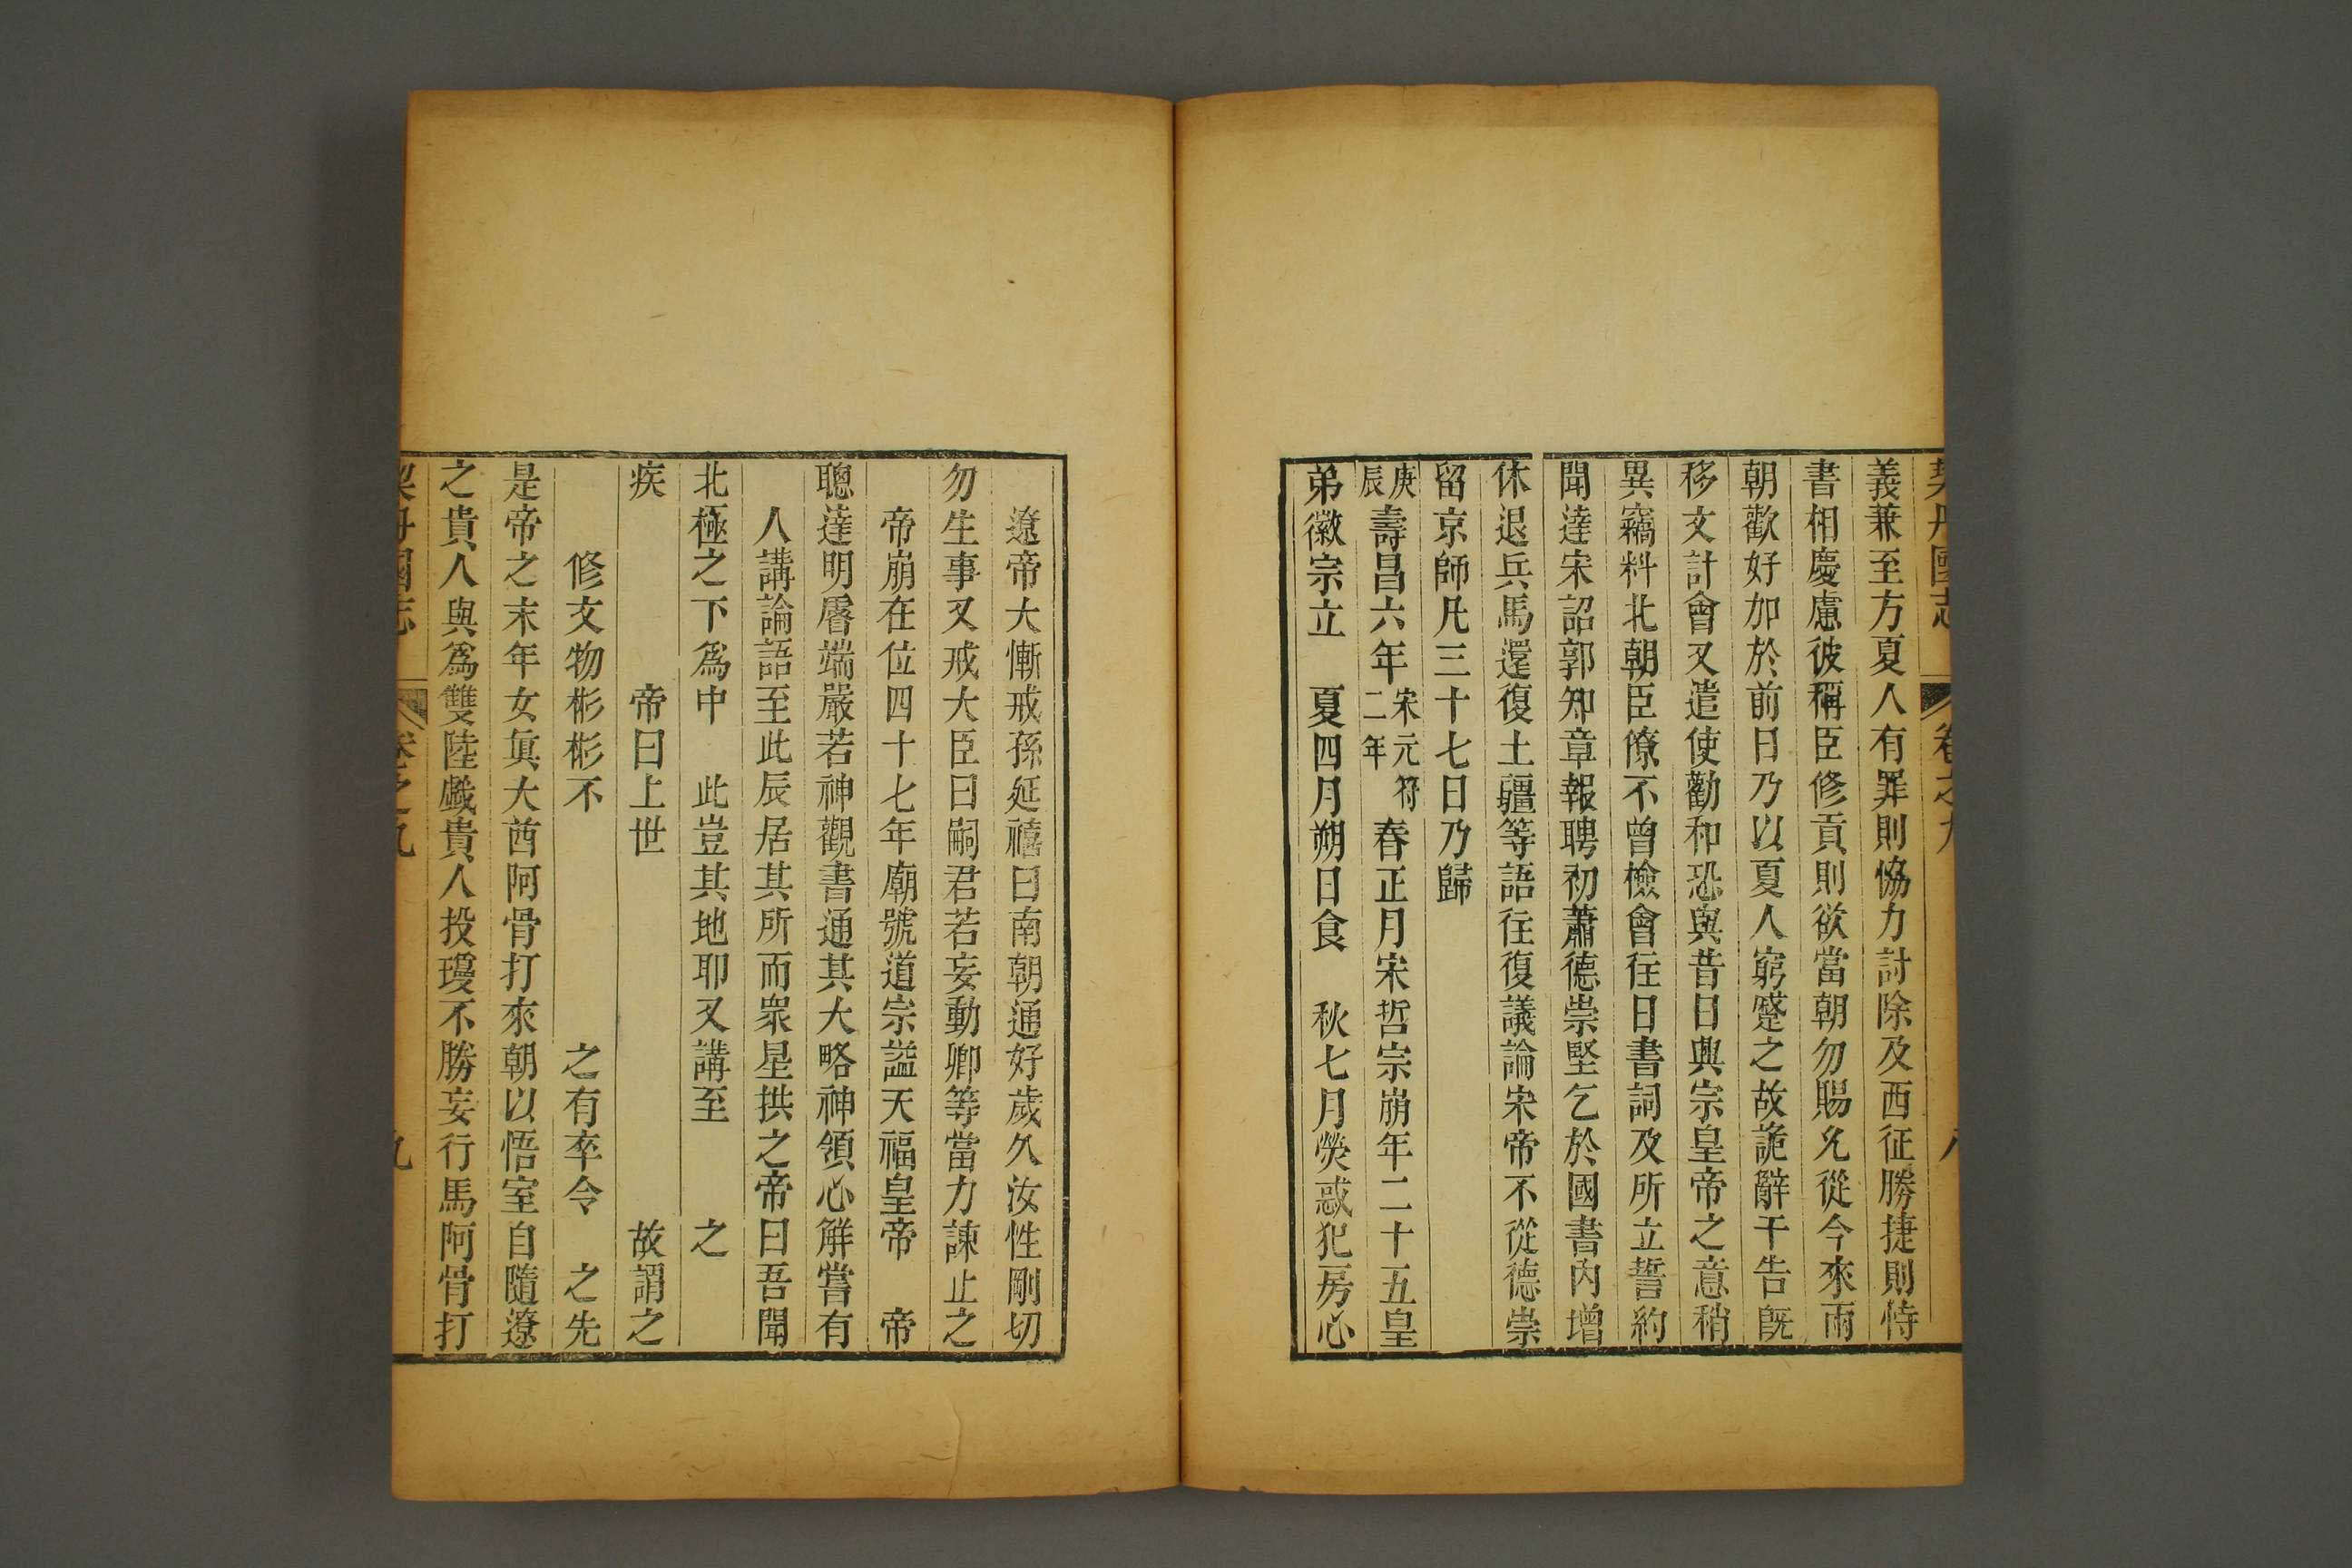 契丹國志 卷之九 八
義兼至方夏人有罪則恊力討除及西征勝捷則恃
書相慶慮彼稱臣修貢則欲當朝勿賜允從今來兩
朝歡好加於前日乃以夏人窮蹙之故詭辭干告旣
移文計會又遣使勸和恐與昔日興宗皇帝之意稍
異竊料北朝臣僚不曾檢會徃日書詞及所立誓約
聞達宋詔郭知章報聘初蕭德崇堅乞於國書内增
休退兵馬還復土疆等語徃復議論宋帝不從德崇
留京師凡三十七日乃歸
庚辰壽昌六年宋元符二年春正月宋哲宗崩年二十五皇
弟徽宗立 夏四月朔日食 秋七月熒惑犯房心
遼帝大慚戒孫延禧曰南朝通好歲久汝性剛切
勿生事又戒大臣曰嗣君若妄動卿等當力諫止之
帝崩在位四十七年廟號道宗謚天福皇帝 帝
聰達明睿端嚴若神觀書通其大略神領心解嘗有
人講論語至此辰居其所而衆星拱之帝曰吾聞
北極之下爲中 此豈其地耶又講至 之
疾 帝曰上世 故謂之
修文物彬彬不 之有卒令 之先
是帝之末年女眞大酋阿骨打來朝以悟室自隨遼
之貴人與爲雙陸戲貴人投瓊不勝妄行馬阿骨打
契丹國志 卷之九 九